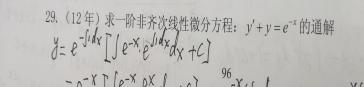 29.（12年）求一阶非齐次线性微分方程：y′+y=e^{-x}的通解
y=e^{-∫1dx}[∫e^{-x}·e^{∫1dx}dx+C]
96